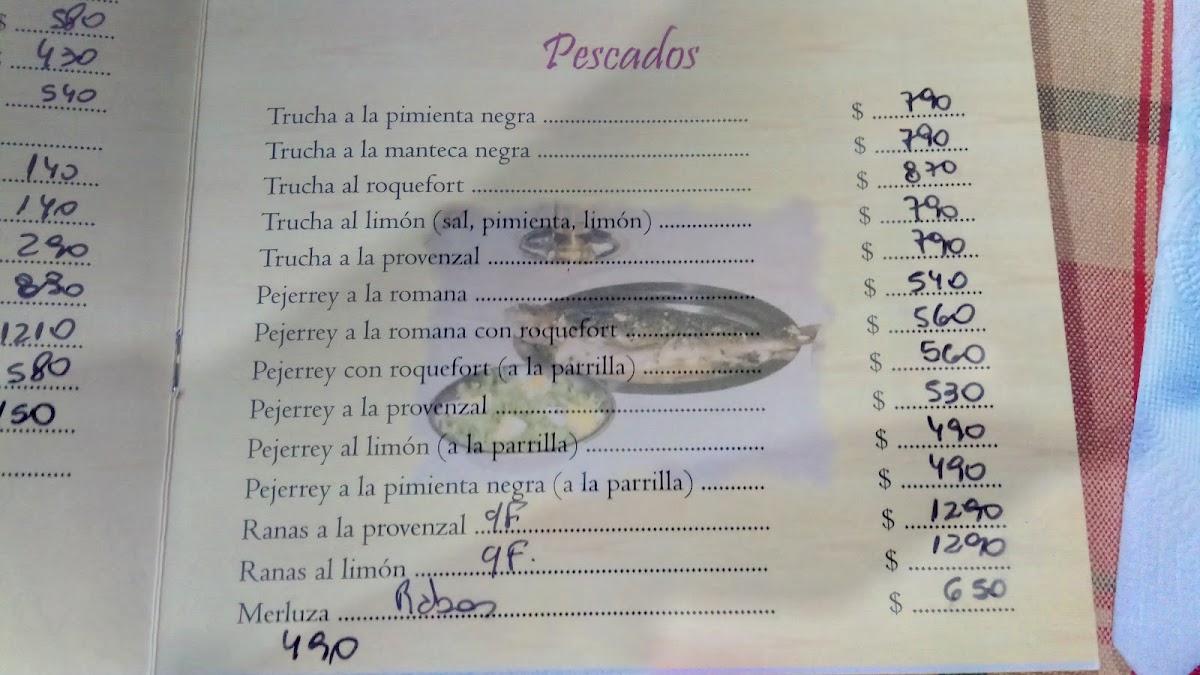 580
430
540
140
140
290
830
1210
580
150
Pescados
Trucha a la pimienta negra ........ $ 790
Trucha a la manteca negra ........ $ 790
Trucha al roquefort ........ $ 870
Trucha al limón (sal, pimienta, limón) ........ $ 790
Trucha a la provenzal ........ $ 790
Pejerrey a la romana ........ $ 540
Pejerrey a la romana con roquefort ........ $ 560
Pejerrey con roquefort (a la parrilla) ........ $ 560
Pejerrey a la provenzal ........ $ 530
Pejerrey al limón (a la parrilla) ........ $ 490
Pejerrey a la pimienta negra (a la parrilla) ........ $ 490
Ranas a la provenzal ........ $ 1290
Ranas al limón ........ $ 1290
Merluza ........ $ 650
490